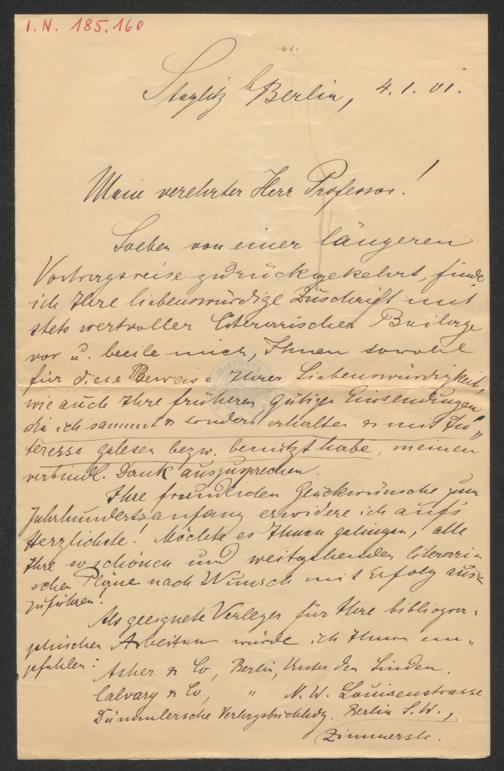 I. N. 185.160
Steglitz b/Berlin, 4.1.01.
Mein verehrter Herr Professor!
Soeben von einer längeren
Vortragsreise zurückgekehrt, finde
ich Ihre liebenswürdige Zuschrift mit
stets wertvoller literarischer Beilage
vor u. beeile mich, Ihnen sowohl
für diese Beweise Ihrer Liebenswürdigkeit,
wie auch Ihre früheren gütigen Einsendungen,
die ich sammt u. sonders erhalten u. mit In-
teresse gelesen bezw. benützt habe, meinen
verbindl. Dank auszusprechen.
Ihre freundlichen Glückwünsche zum
Jahrhundertsanfang erwidere ich auf's
Herzlichste! Möchte es Ihnen gelingen, alle
Ihre schönen und weitgehenden literari-
schen Pläne nach Wunsch mit Erfolg aus-
zuführen.
Als geeignete Verleger für Ihre bibliogra-
phischen Arbeiten würde ich Ihnen em-
pfehlen:
Asher & Co, Berlin, Unter den Linden.
Calvary & Co, " N. W. Louisenstrasse.
Dümmlersche Verlagsbuchhdg. Berlin S. W.,
Zimmerstr.